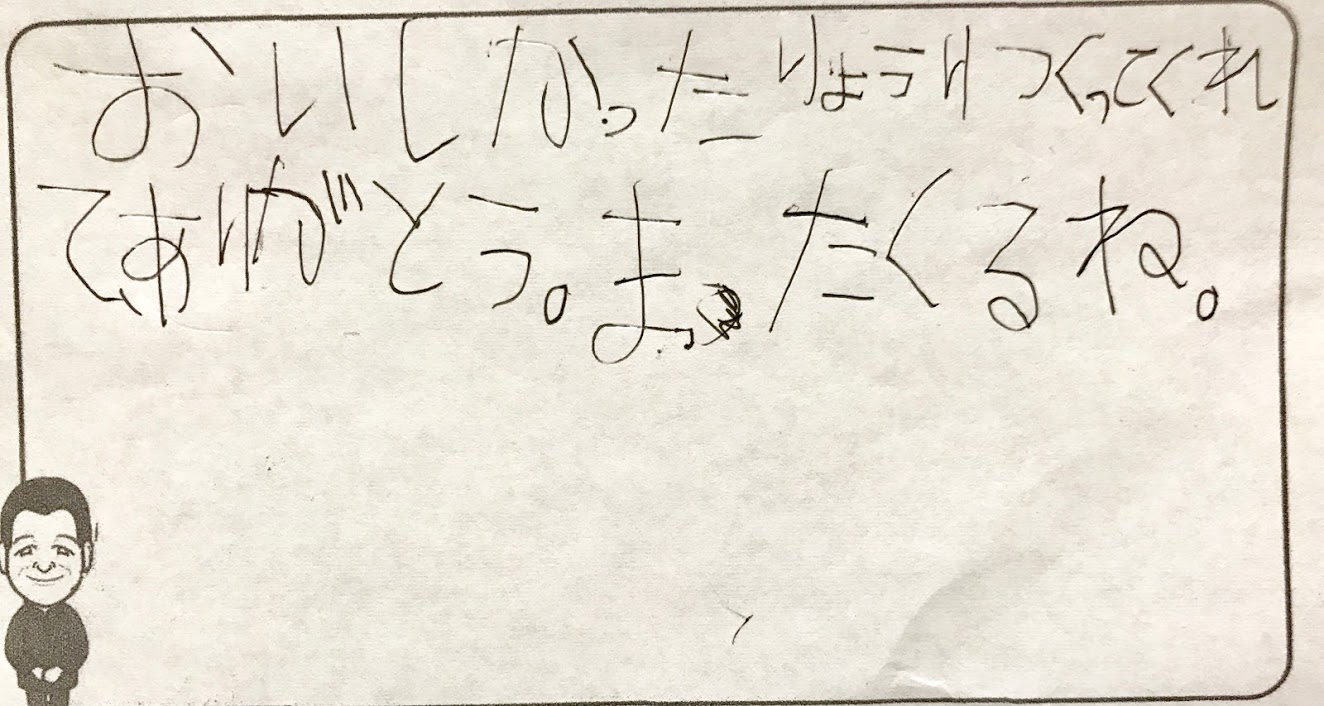 おいしかったりょうりつくってくれ
てありがとう。またくるね。